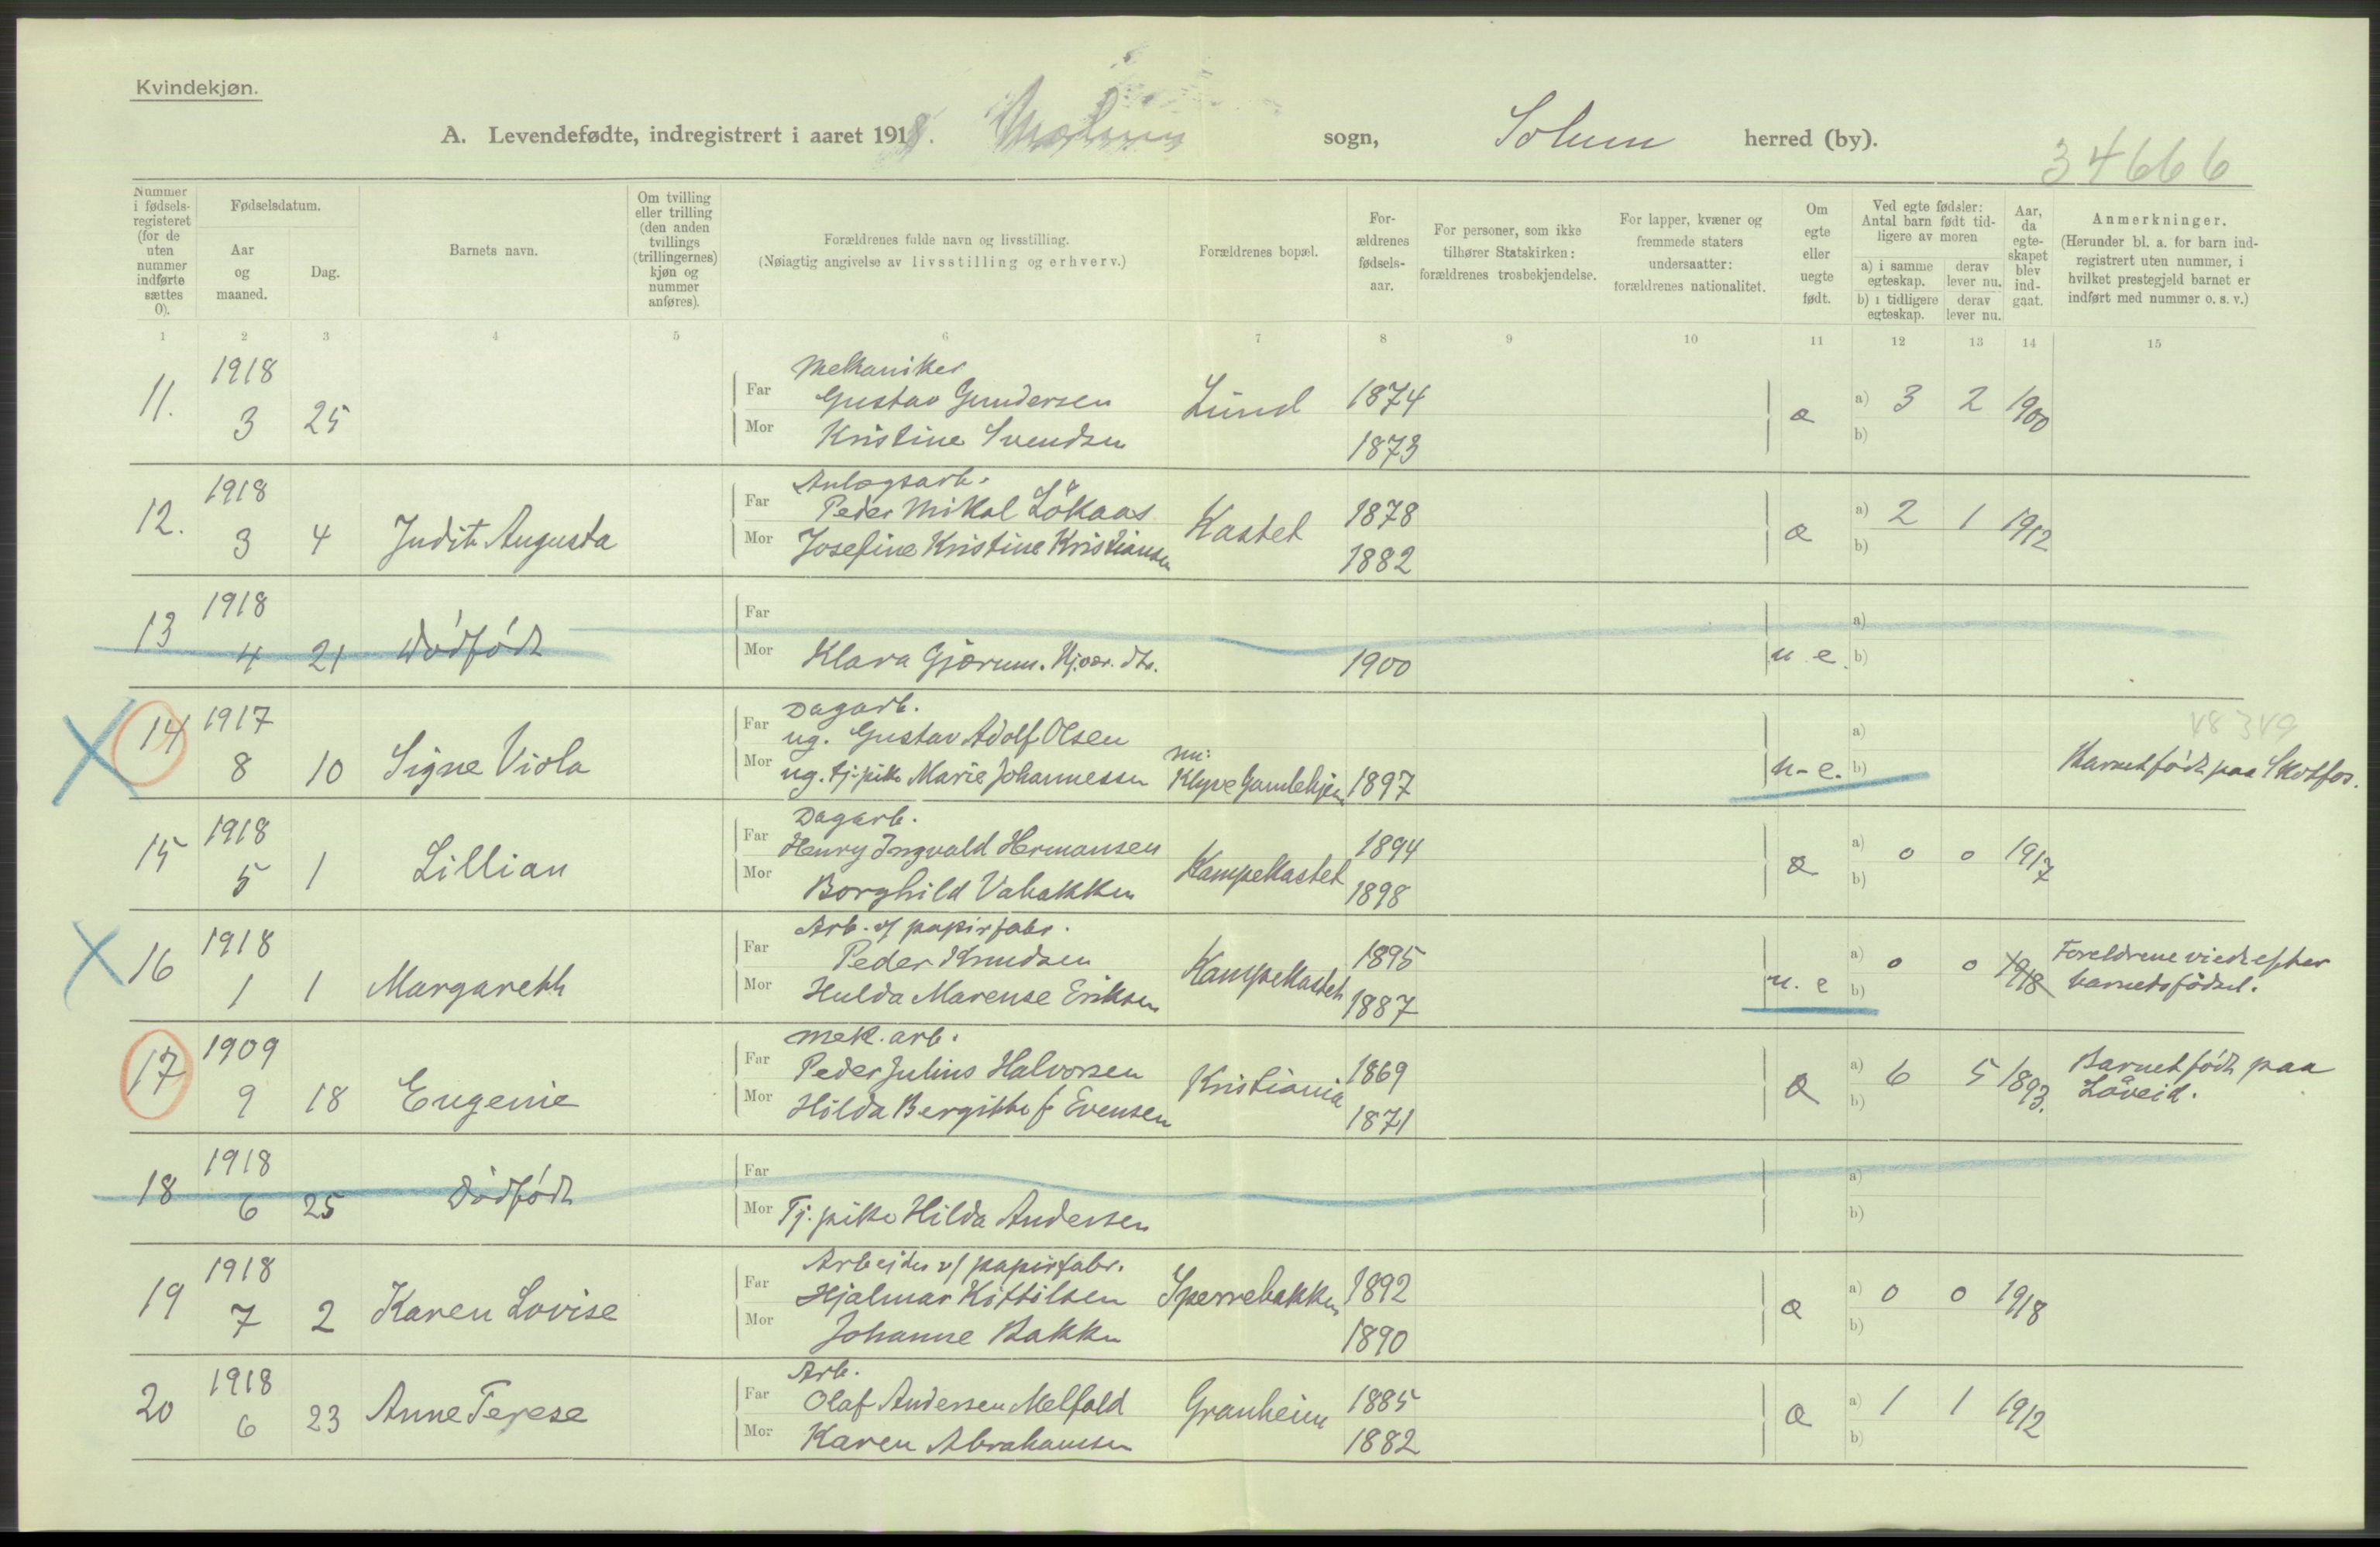 Kvindekjøn.
A. Levendefødte, indregistrert i aaret 1918. sogn, Solum herred (by).
34666
Nummer i fødsels-registeret (for de uten nummer indførte sættes 0).
Fødselsdatum.
Aar og maaned.
Dag.
Barnets navn.
Om tvilling eller trilling (den anden tvillings (trillingernes) kjøn og nummer anføres).
Forældrenes fulde navn og livsstilling.
(Nøiagtig angivelse av livsstilling og erhverv.)
Forældrenes bopæl.
For-ældrenes fødsels-aar.
For personer, som ikke tilhører Statskirken: forældrenes trosbekjendelse.
For lapper, kvæner og fremmede staters undersaatter: forældrenes nationalitet.
Om egte eller uegte født.
Ved egte fødsler: Antal barn født tid-ligere av moren
a) i samme egteskap. derav lever nu.
b) i tidligere egteskap. derav lever nu.
Aar, da egte-skapet blev ind-gaat.
Anmerkninger.
(Herunder bl. a. for barn ind-registrert uten nummer, i hvilket prestegjeld barnet er indført med nummer o. s. v.)
1 2 3 4 5 6 7 8 9 10 11 12 13 14 15
1918 Mekaniker
11. 3 25 Far Gustav Gundersen Lund 1874 e a) 3 2 1900
Mor Kristine Svendsen 1873 b)
1918 Anlægsarb.
12. 3 4 Judit Augusta Far Peder Mikal Lökaas Kastet 1878 e a) 2 1 1912
Mor Josefine Kristine Kristiansen 1882 b)
1918 Far a)
13 4 21 Dødfødt Mor Klara Gjærum. 1900 u e. b)
1917 Dagarb. 48349
14 8 10 Signe Viola Far ug. Gustav Adolf Olsen a)
Mor ug. tj. pike Marie Johannessen Klyve Gamlehjem 1897 u-e. b) Barnet født paa Skotfos.
1918 Dagarb.
15 5 1 Lillian Far Henry Ingvald Hermansen Kampekastet 1894 e a) 0 0 1917
Mor Borghild Valbakken 1898 b)
1918 Arb. v/ papirfabr.
16 1 1 Margareth Far Peder Knudsen Kampekastet 1895 u. e a) 0 0 1918 Foreldrene viedt efter
Mor Hulda Marense Eriksen 1887 b) barnets födsel.
1909 mek. arb.
17 9 18 Eugenie Far Peder Julius Halvorsen Kristiania 1869 e a) 6 5 1893. Barnet født paa
Mor Hilda Bergitte f Evensen 1871 b) Löveid.
1918 Far a)
18 6 25 Dødfødt Mor Tj. pike Hilda Andersen b)
1918 Arbeider v/ papirfabr.
19 7 2 Karen Lovise Far Hjalmar Kittilsen Sperrebakken 1892 e a) 0 0 1918
Mor Johanne Bakken 1890 b)
1918 Arb.
20 6 23 Anne Terese Far Olaf Andersen Melfald Granheim 1885 e a) 1 1 1912
Mor Karen Abrahamsen 1882 b)